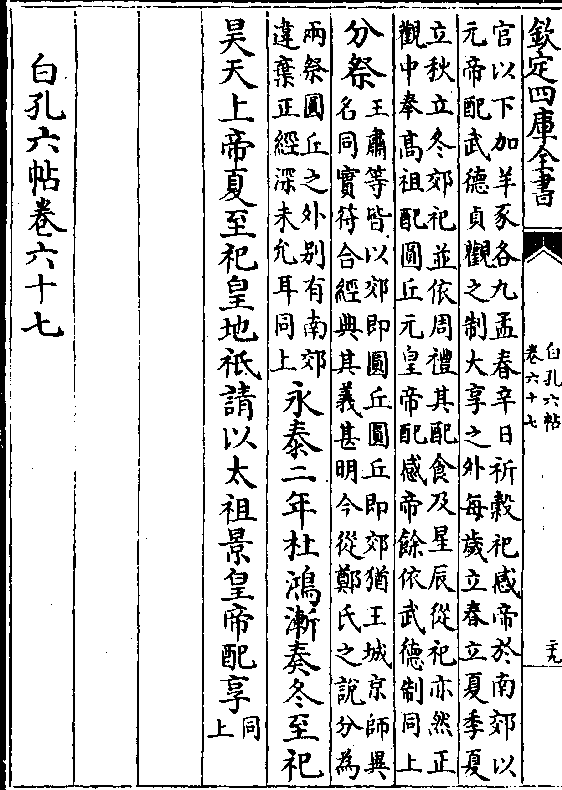 欽定四庫全書
白孔六帖
卷六十七
二十九
官以下加羊豕各九孟春辛日祈穀祀感帝於南郊以
元帝配武德貞觀之制大享之外每歲立春立夏季夏
立秋立冬郊祀並依周禮其配食及星辰從祀亦然正
觀中奉髙祖配圓丘元皇帝配感帝餘依武德制同上
分祭
王肅等皆以郊即圓丘圓丘即郊猶王城京師異
名同實符合經典其義甚明今從鄭氏之說分為
兩祭圓丘之外别有南郊
違棄正經深未允耳同上
永泰二年杜鴻漸奏冬至祀
昊天上帝夏至祀皇地祗請以太祖景皇帝配享同上
白孔六帖卷六十七